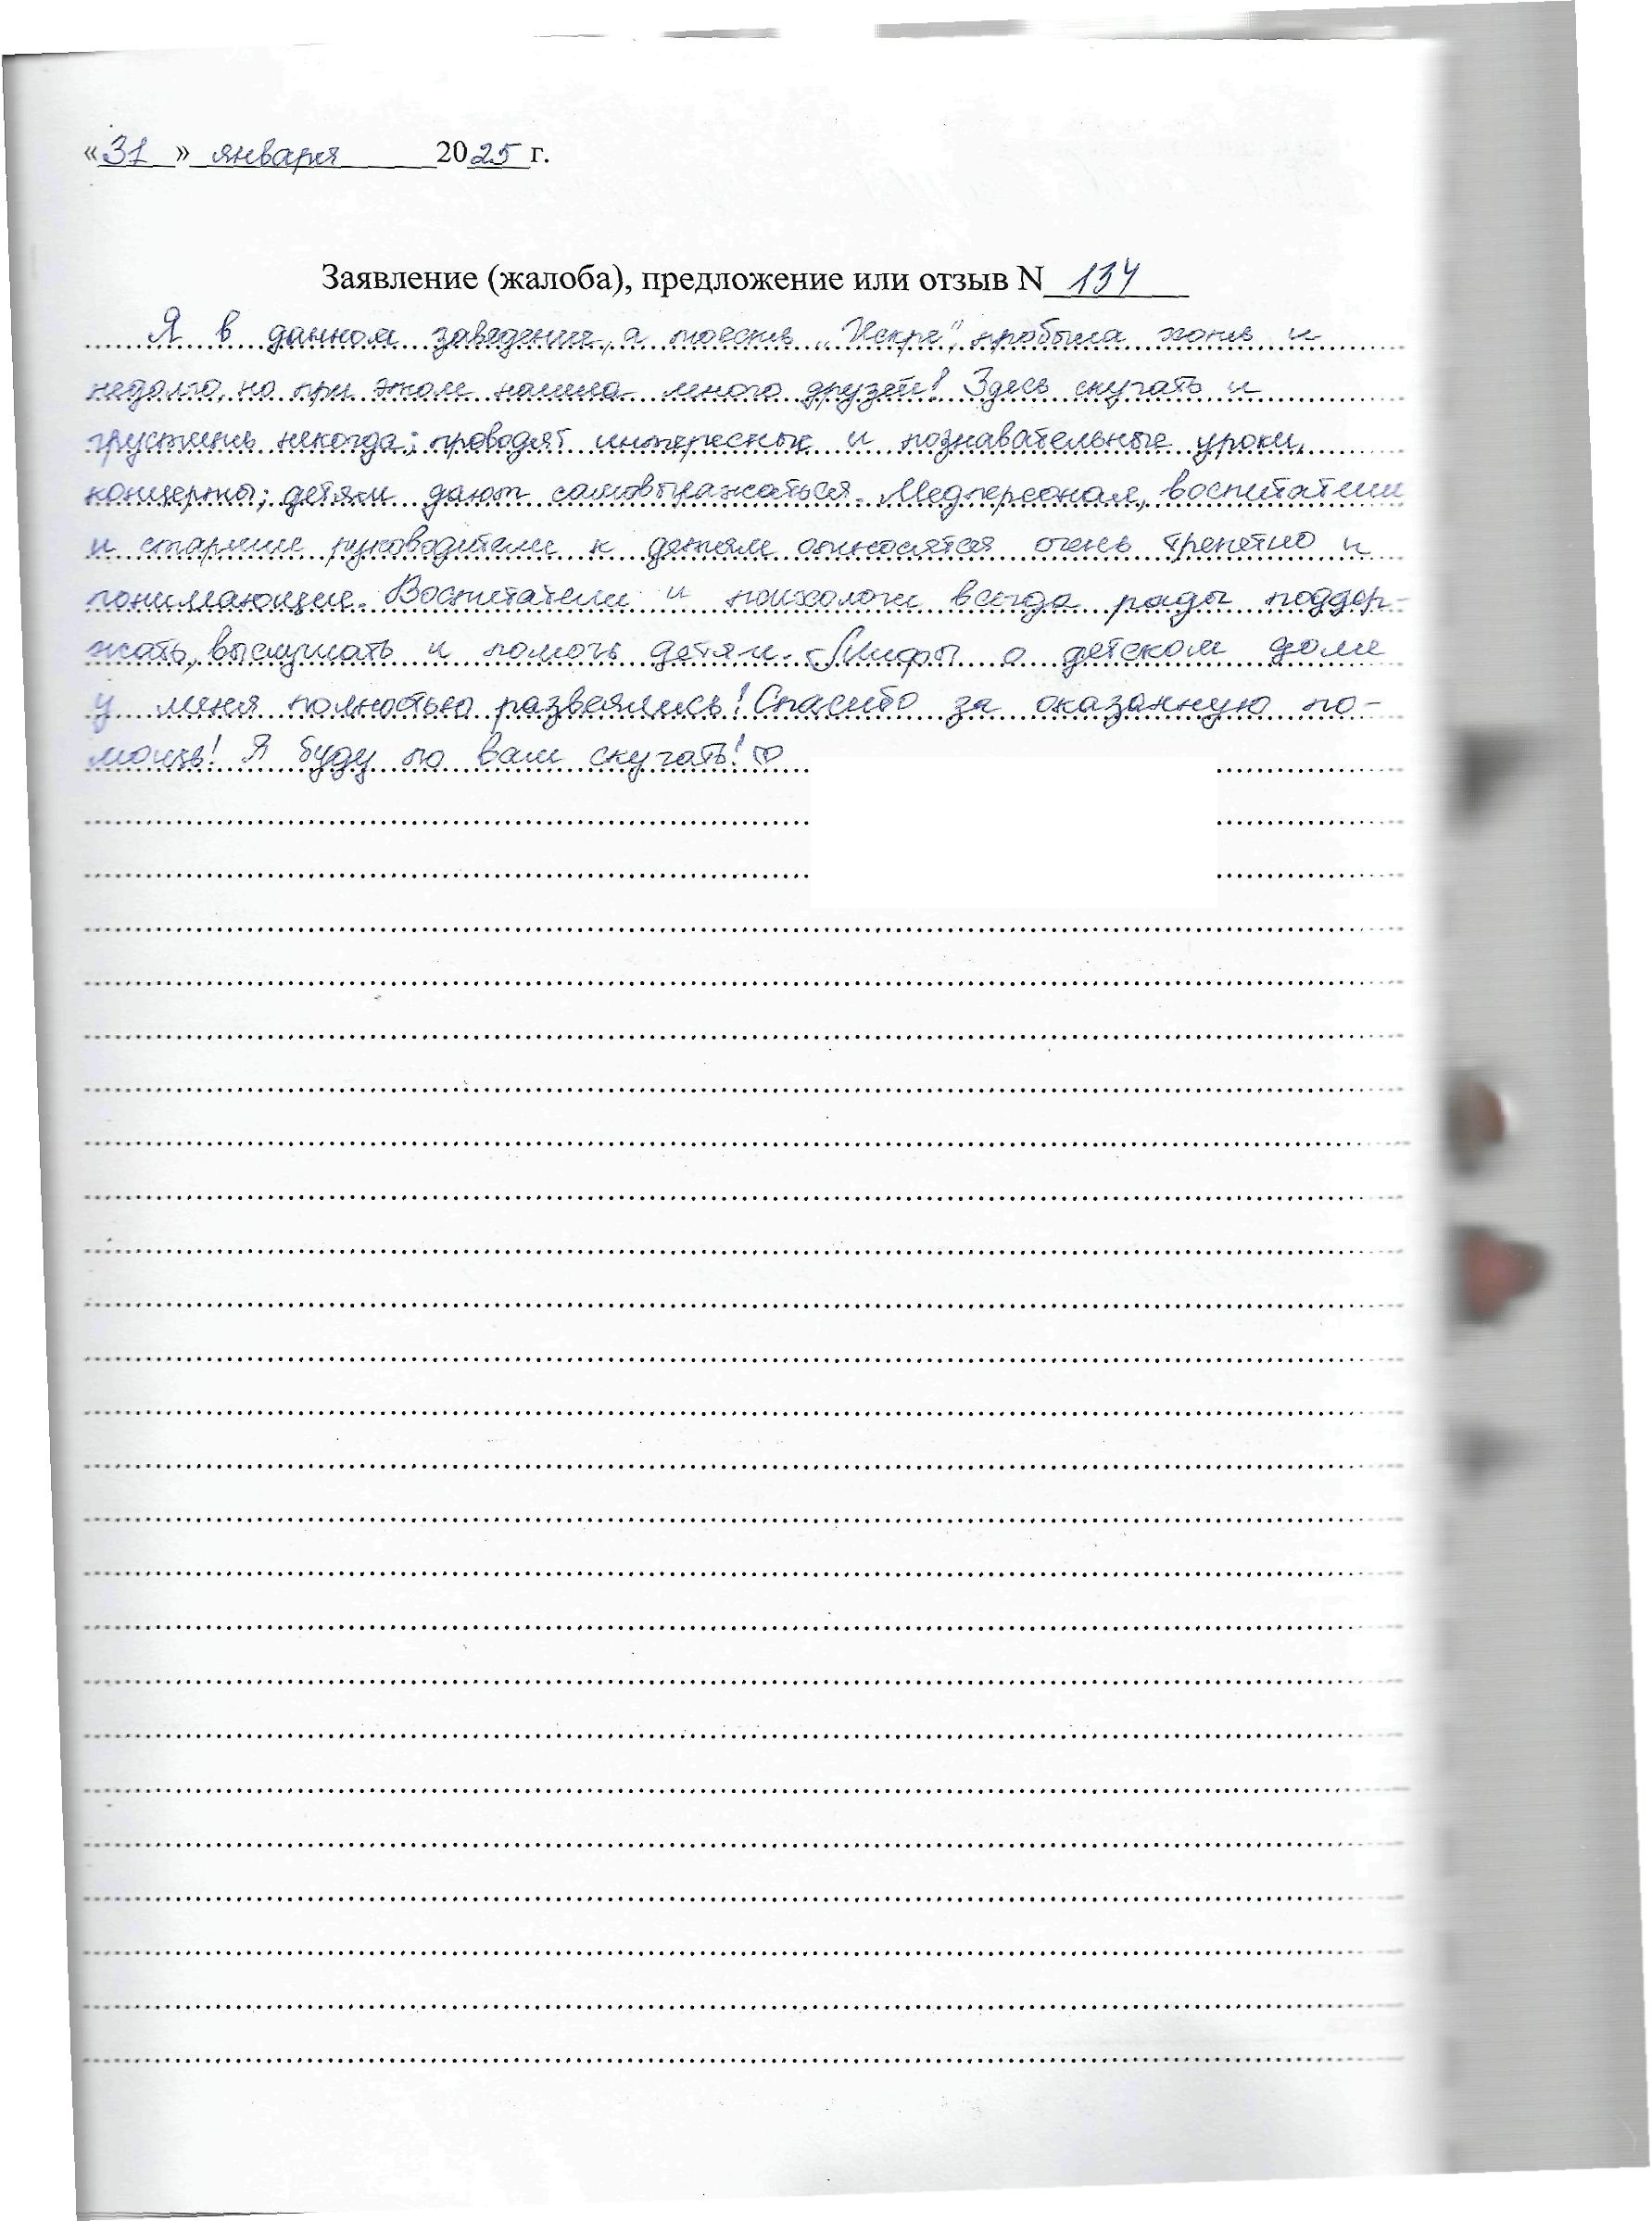 «31» января 2025 г.
Заявление (жалоба), предложение или отзыв N 134
Я в данном заведение, а тоесть „Искре", пробыла хоть и
недолго, но при этом нашла много друзей! Здесь скучать и
грустить некогда; проводят интересные и познавательные уроки,
концерты; детям дают самовыражаться. Медперсонал, воспитатели
и старшие руководители к детям относятся очень трепетно и
понимающие. Воспитатели и психологи всегда рады поддер-
жать, выслушать и помочь детям. Мифы о детском доме
у меня полностью развеялись! Спасибо за оказанную по-
мощь! Я буду по вам скучать! ♡